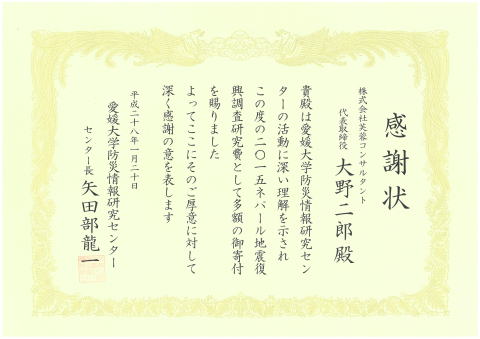 感謝状
株式会社芙蓉コンサルタント
代表取締役 大野二郎殿
貴殿は愛媛大学防災情報研究セン
ターの活動に深い理解を示され
この度の二〇一五ネパール地震復
興調査研究費として多額の御寄付
を賜りました
よってここにそのご厚意に対して
深く感謝の意を表します
平成二十八年一月二十日
愛媛大学防災情報研究センター
センター長 矢田部龍一